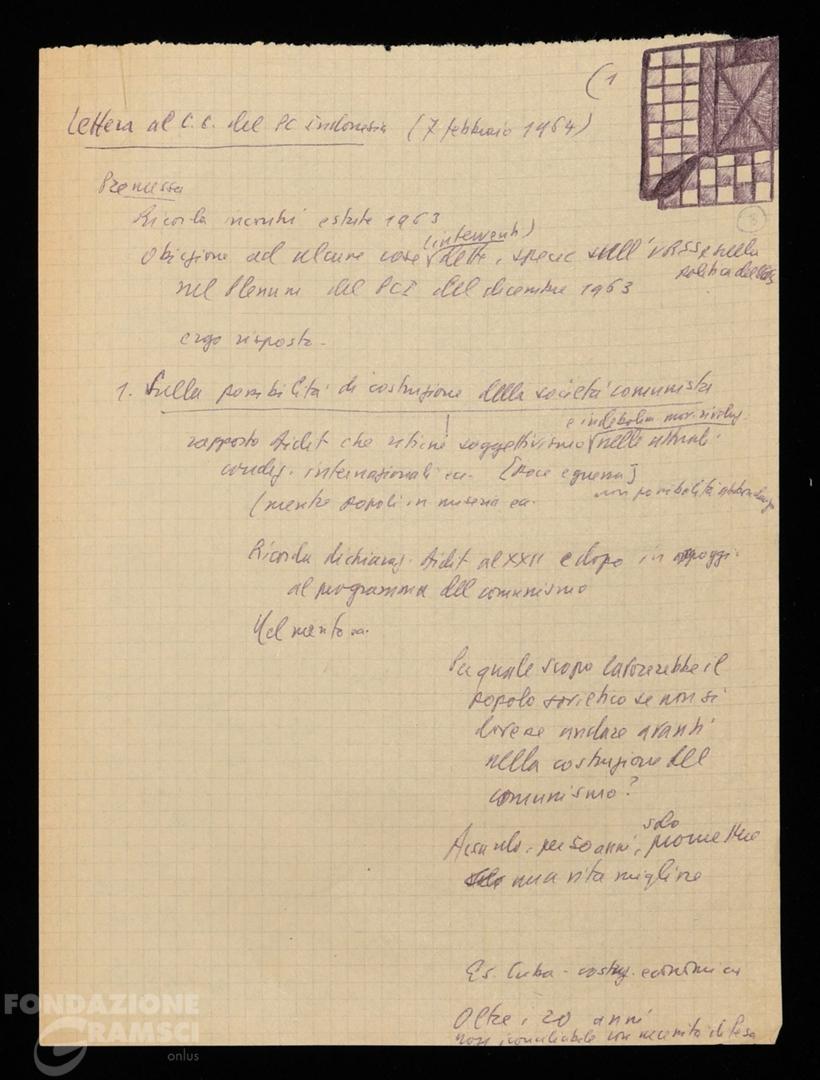 (1
Lettera al C.C. del PC indonesia (7 febbraio 1964)
3
Premessa
Ricorda incontri estate 1963
(interventi)
Obiezione ad alcune cose dette, specie sull'URSS e nella
politica dell'
nel Plenum del PCI del dicembre 1963
ergo risposta.
1. Sulla possibilità di costruzione della società comunista
e indebolim.
rapporto Aidit che ritiene soggettivismo nelle attuali
condiz. internazionali ecc. [pace e guerra]
non possibilità abbondanza
(mentre popoli in miseria ecc.
Ricorda dichiaraz. Aidit al XXII e dopo in appoggio
al programma del comunismo
Nel merito ecc.
Per quale scopo lavorerebbe il
popolo sovietico se non si
dovesse andare avanti
nella costruzione del
comunismo?
solo
Assurdo, per 50 anni, promettere
una vita migliore
Es. Cuba - costruz. economica
Oltre, 20 anni
non inconciliabile con necessità difesa
FONDAZIONE
GRAMSCI
onlus